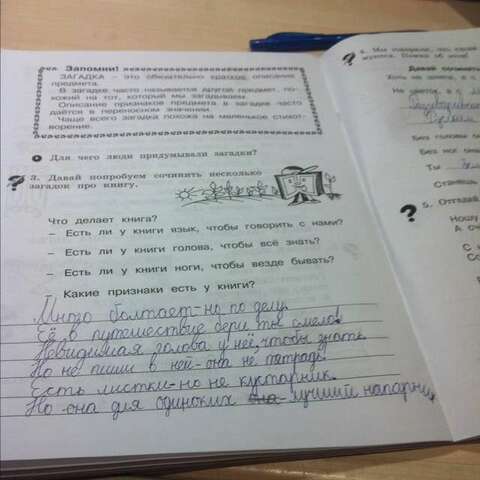 Запомни!
ЗАГАДКА – это обязательно краткое описание
предмета.
В загадке часто называется другой предмет, по-
хожий на тот, который мы загадываем.
Описание признаков предмета в загадке часто
даётся в переносном значении.
Чаще всего загадка похожа на маленькое стихот-
ворение.
Для чего люди придумывали загадки?
? 3. Давай попробуем сочинить несколько
загадок про книгу.
Что делает книга?
– Есть ли у книги язык, чтобы говорить с нами?
– Есть ли у книги голова, чтобы всё знать?
– Есть ли у книги ноги, чтобы везде бывать?
Какие признаки есть у книги?
Много болтает-но по делу.
Её в путешествие бери ты смело!
Невидимая голова у неё, чтобы знать
Но не пиши в ней-она не тетрадь.
Есть листки-но не кустарник.
Но она для одиноких лучший напарник
? 4.
Давай
Хоть не шляпа, а с
Не цветок, а с
Без головы
Без ног
Ты
Станешь
? 5. Отгадай
Ношу
А
С
Со